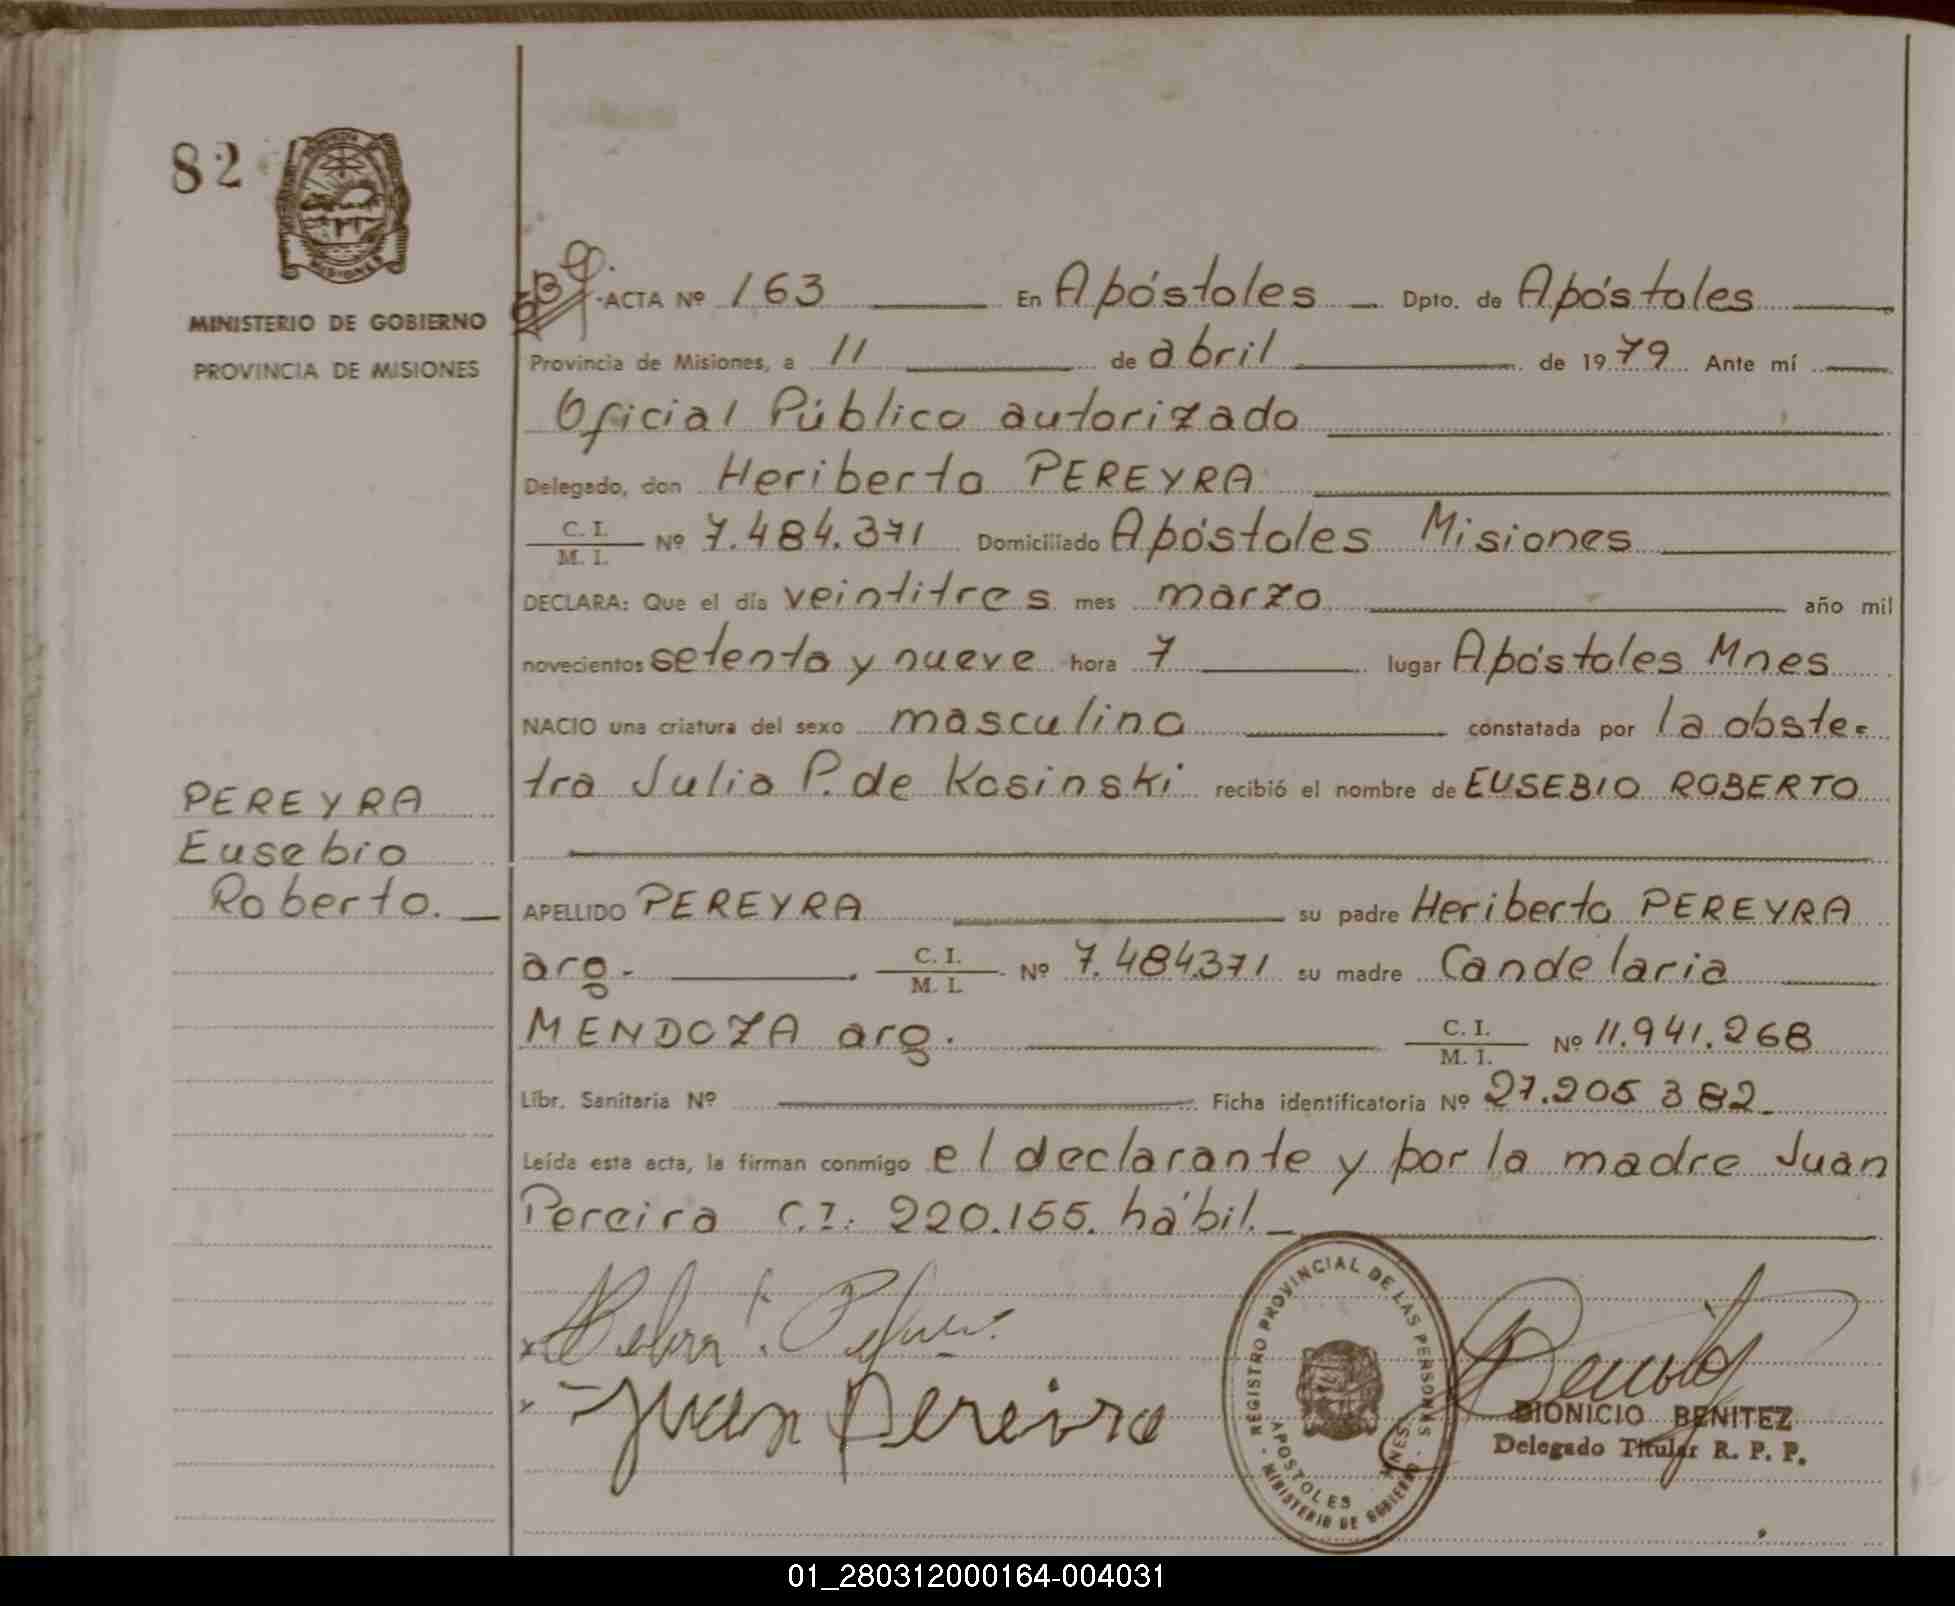 82
MISIONES
MINISTERIO DE GOBIERNO
PROVINCIA DE MISIONES
ACTA Nº 163 En Apóstoles Dpto. de Apóstoles
Provincia de Misiones, a 11 de abril de 1979 Ante mí
Oficial Público autorizado
Delegado, don Heriberto PEREYRA
C. I.
M. I.
Nº 7.484.371 Domiciliado Apóstoles Misiones
DECLARA: Que el día veintitres mes marzo año mil
novecientos setenta y nueve hora 7 lugar Apóstoles Mnes
NACIO una criatura del sexo masculino constatada por la obste-
tra Julia P. de Kosinski recibió el nombre de EUSEBIO ROBERTO
PEREYRA
Eusebio
Roberto.
APELLIDO PEREYRA su padre Heriberto PEREYRA
arg. C. I.
M. I.
Nº 7.484371 su madre Candelaria
MENDOZA arg. C. I.
M. I.
Nº 11.941.268
Libr. Sanitaria Nº Ficha identificatoria Nº 27.205 382
Leída esta acta, la firman conmigo el declarante y por la madre Juan
Pereira C.I. 220.155. hábil.
Juan Pereira
REGISTRO PROVINCIAL DE LAS PERSONAS
APOSTOLES MNES.
MINISTERIO DE GOBIERNO
DIONICIO BENITEZ
Delegado Titular R. P. P.
01_280312000164-004031